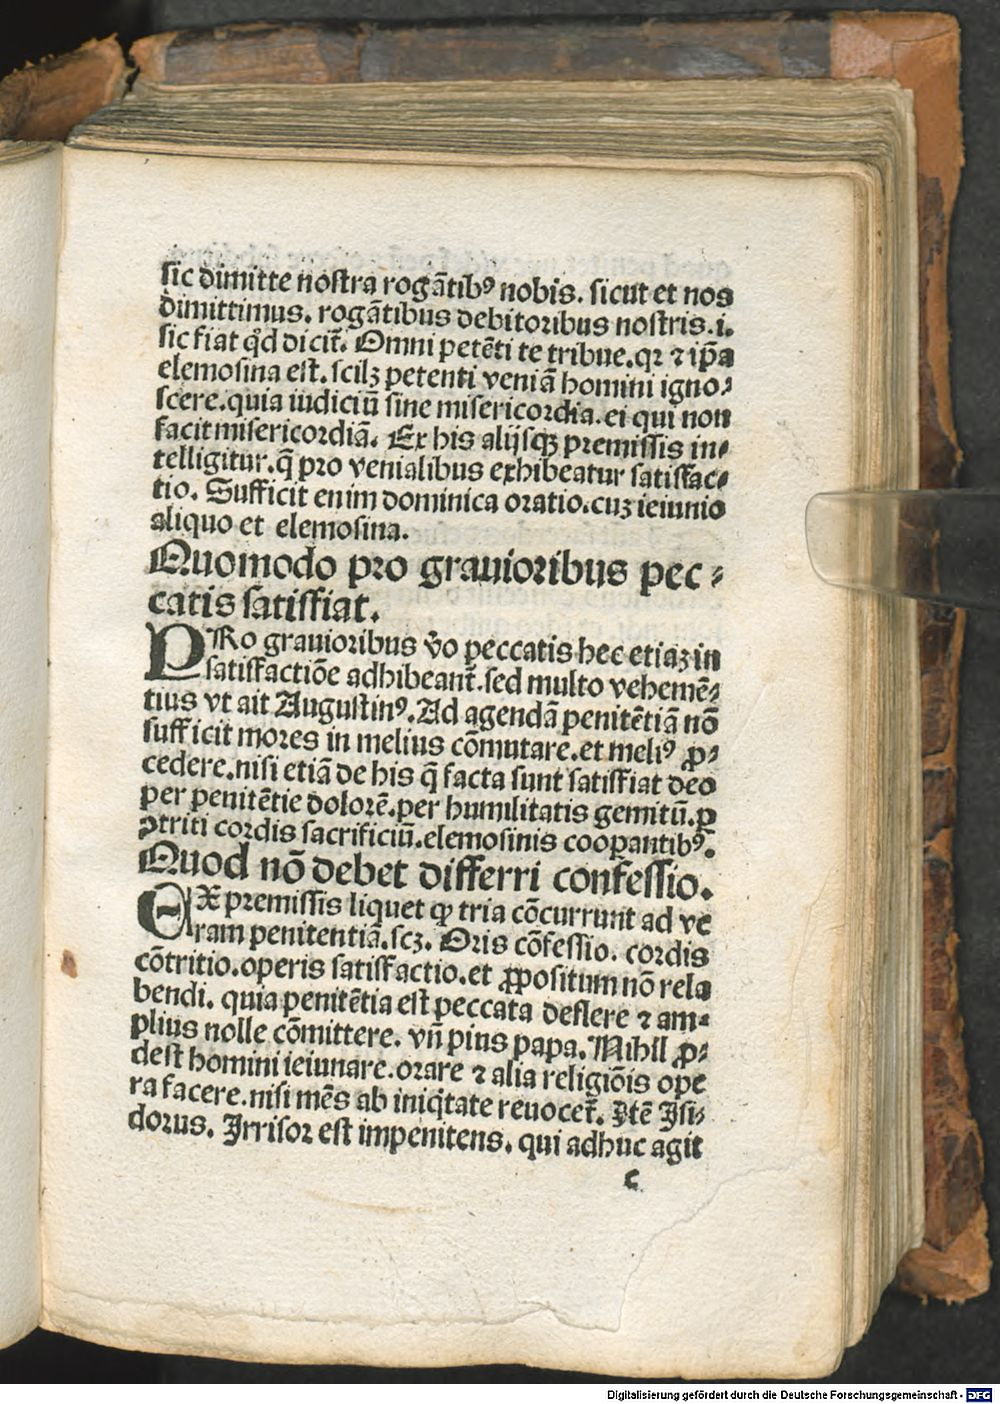 sic dimitte nostra rogãtibꝰ nobis. sicut et nos
dimittimus. rogãtibus debitoribus nostris .i.
sic fiat qd̛ dicit̃. Omni petẽti te tribue. qꝛ ⁊ ip̃a
elemosina est. scilꝫ petenti veniã homini igno⸗
scere. quia iudiciũ sine misericordia. ei qui non
facit misericordiã. Ex his alijsqꝫ premissis in⸗
telligitur. q̃ pro venialibus exhibeatur satisfac⸗
tio. Sufficit enim dominica oratio. cuꝫ ieiunio
aliquo et elemosina.
Quomodo pro grauioribus pec⸗
catis satisfiat.
PRo grauioribus v̊o peccatis hec etiaꝫ in
satisfactiõe adhibeant̃. sed multo vehemẽ⸗
tius vt ait Augustinꝰ. Ad agendã penitẽtiã nõ
sufficit mores in melius cõmutare. et meliꝰ ꝓ⸗
cedere. nisi etiã de his q̃ facta sunt satisfiat deo
per penitẽtie dolorẽ. per humilitatis gemitũ. ꝑ
ꝯtriti cordis sacrificiũ. elemosinis coopantibꝰ.
Quod nõ debet differri confessio.
EX premissis liquet ꝙ tria cõcurrunt ad ve
ram penitentiã. scꝫ. Oris cõfessio. cordis
cõtritio. operis satisfactio. et ꝓpositum nõ rela
bendi. quia penitẽtia est peccata deflere ⁊ am⸗
plius nolle cõmittere. vñ pius papa. Nihil ꝓ⸗
dest homini ieiunare. orare ⁊ alia religiõis ope
ra facere. nisi mẽs ab iniq̃tate reuocet̃. Itẽ Isi⸗
dorus. Irrisor est impenitens. qui adhuc agit
c
Digitalisierung gefördert durch die Deutsche Forschungsgemeinschaft - DFG